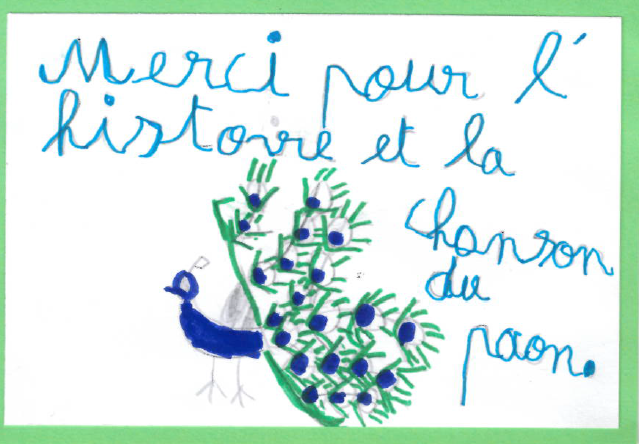 Merci pour l'
histoire et la
chanson
du
paon.